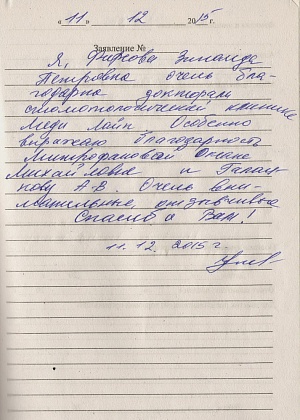 « 11 » 12 2015 г.
Заявление №
Я, Фирсова Зинаида
Петровна очень бла-
годарна докторам
стоматологической клиники
Меди Лайн. Особенно
выражаю благодарность
Митрофановой Олине
Михайловне и Галаш
нову А.В. Очень вни-
мательные, отзывчивые
Спасибо Вам!
11.12.2015 г.